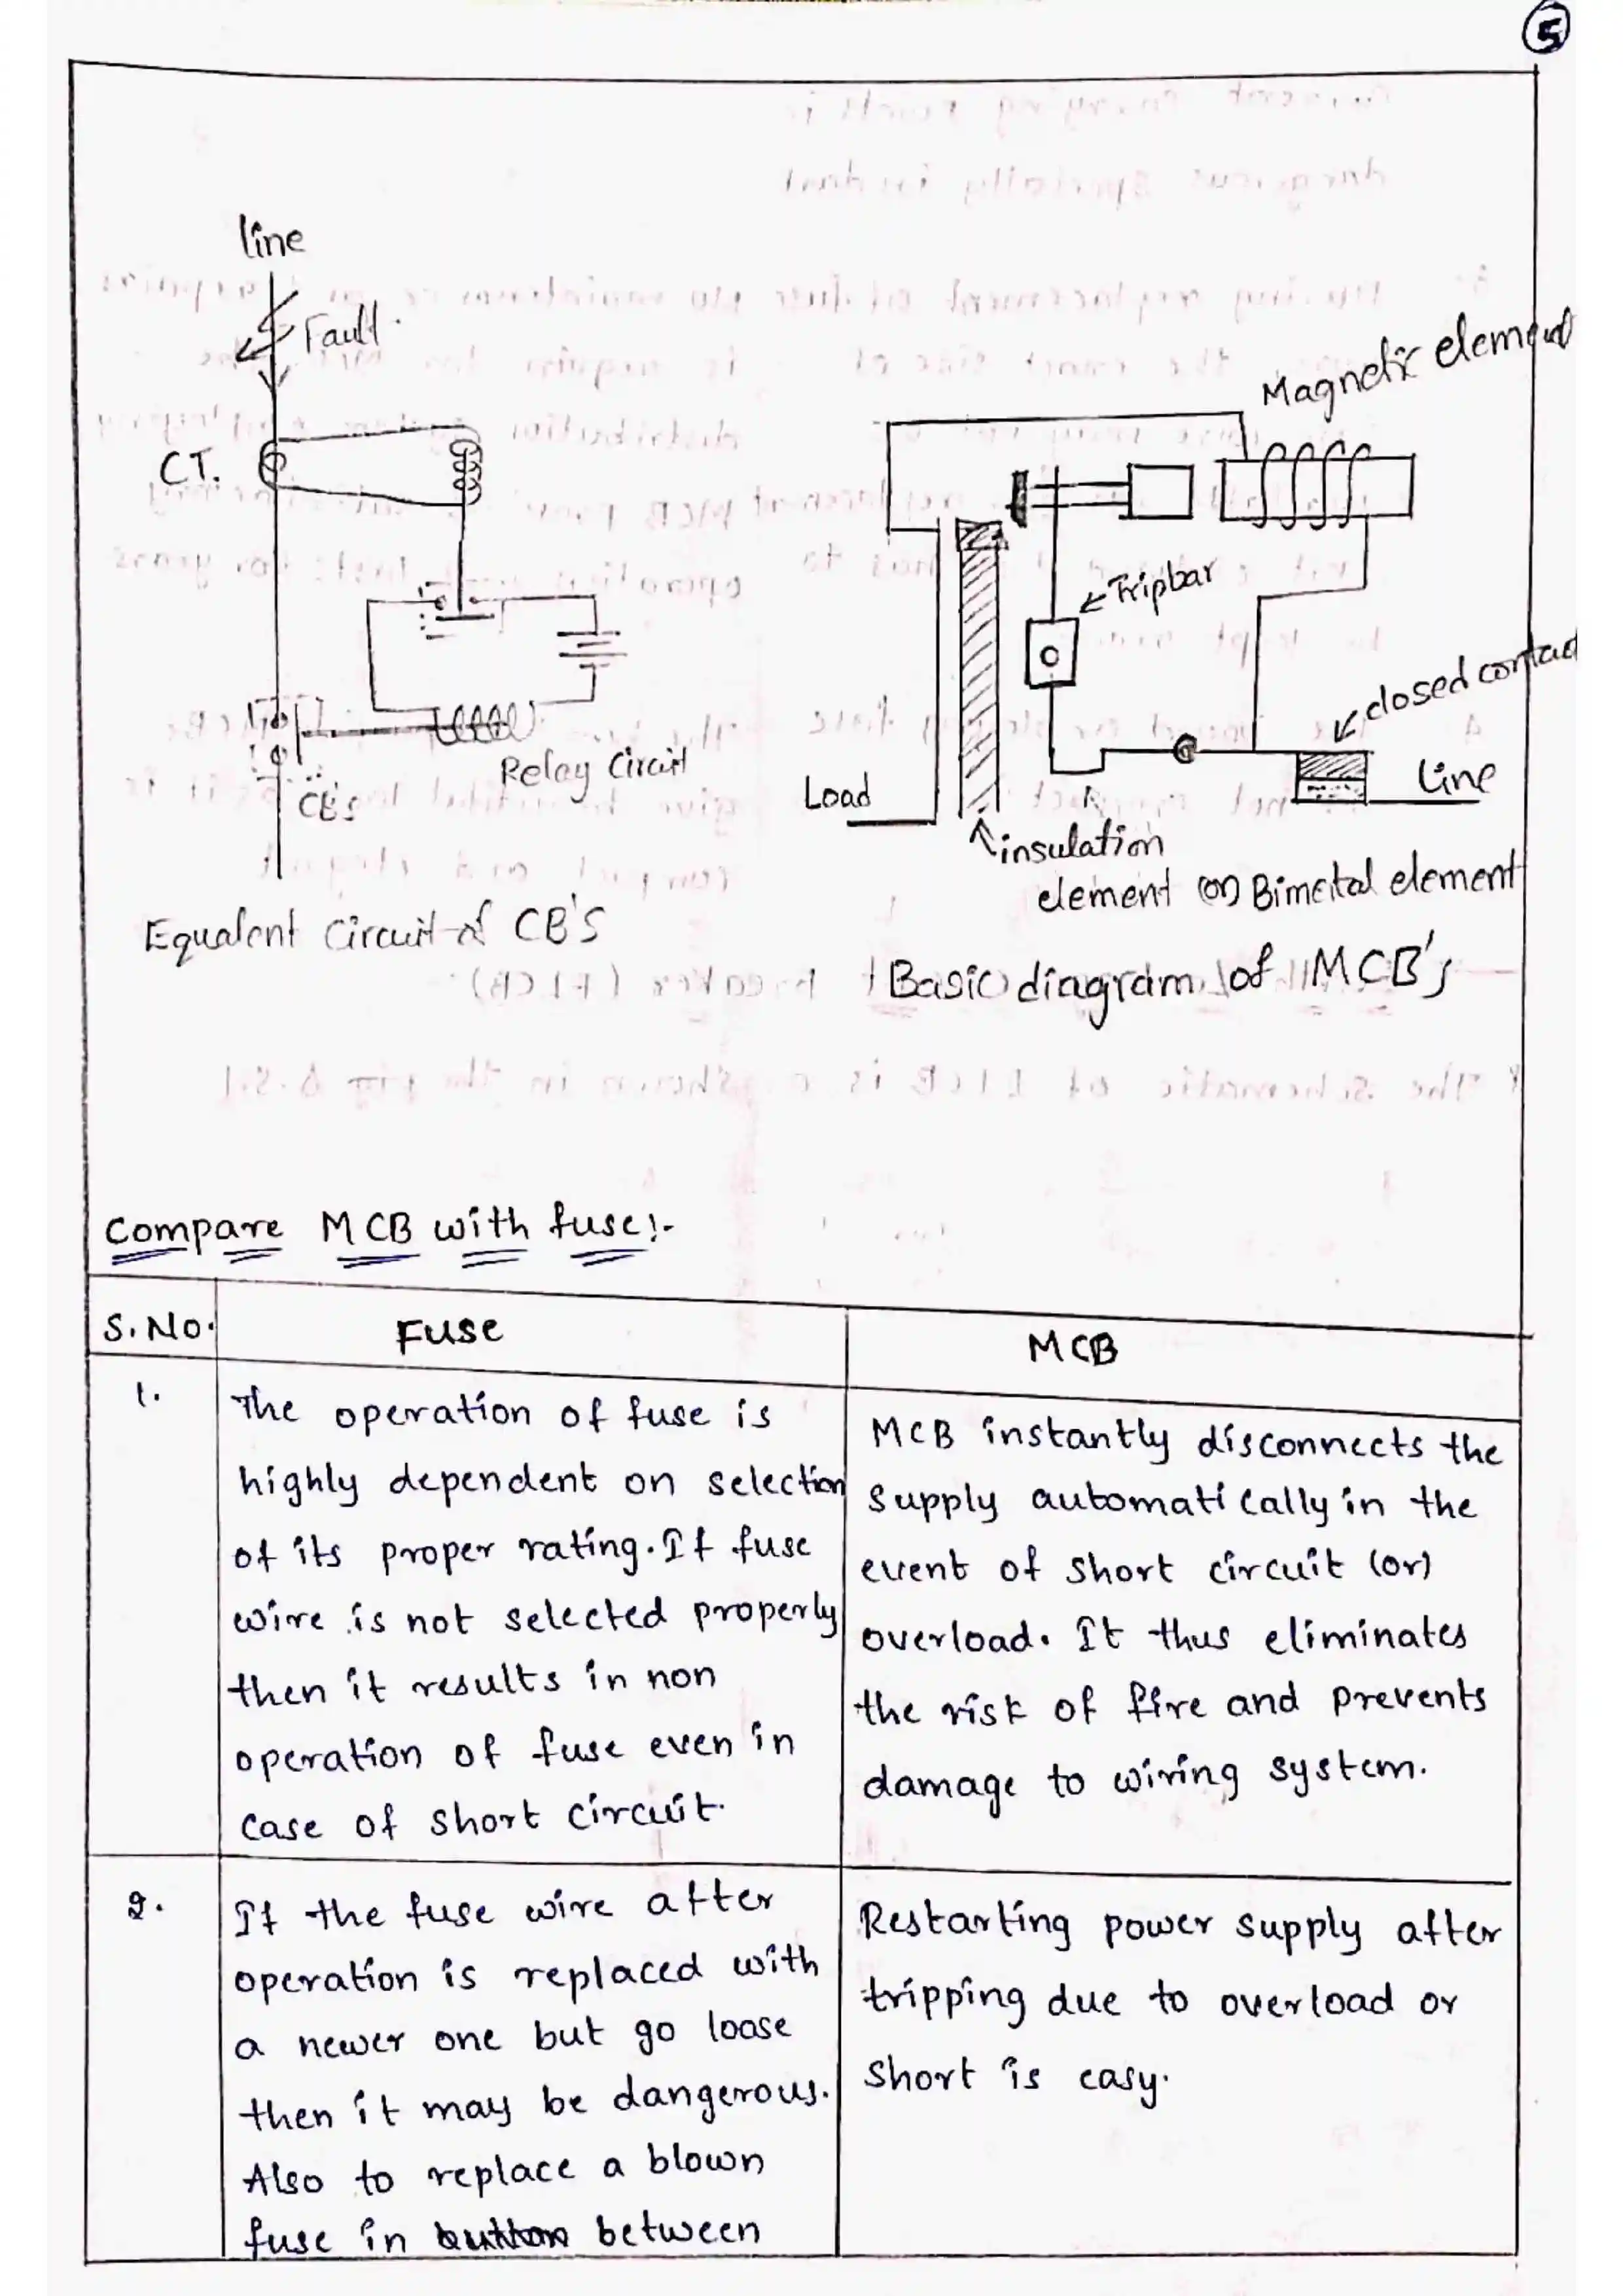 5
line
Fault
CT.
Relay Circuit
CB's
Equalent Circuit of CB'S
Magnetic element
Tripbar
closed contact
Load
Line
insulation
element (or) Bimetal element
Basic diagram of MCB's
Compare MCB with fuse:-
S.No.
Fuse
MCB
1.
The operation of fuse is
highly dependent on selection
of its proper rating. If fuse
wire is not selected properly
then it results in non
operation of fuse even in
case of short circuit.
MCB instantly disconnects the
supply automatically in the
event of short circuit (or)
overload. It thus eliminates
the risk of fire and prevents
damage to wiring system.
2.
If the fuse wire after
operation is replaced with
a newer one but go loose
then it may be dangerous.
Also to replace a blown
fuse in between
Restarting power supply after
tripping due to overload or
short is easy.